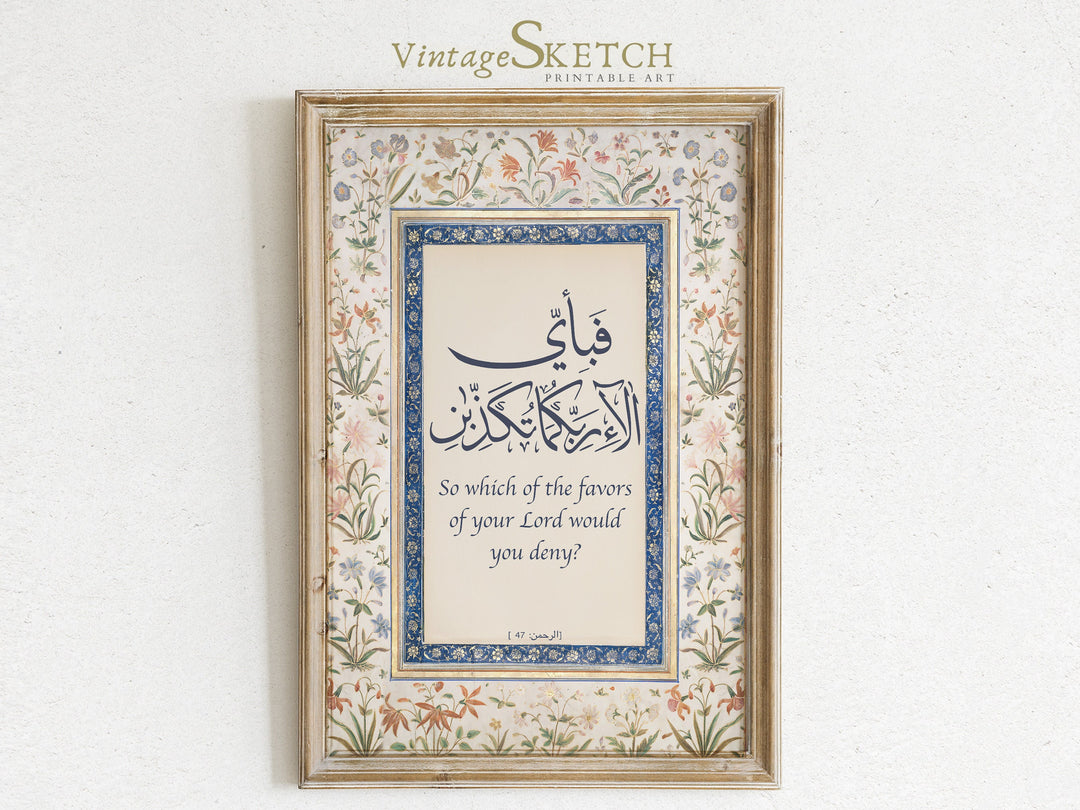 VintageSKETCH
PRINTABLE ART
فَبِأَيِّ
اٰلَآءِ رَبِّكُمَا تُكَذِّبٰنِ
So which of the favors
of your Lord would
you deny?
[الرحمن: 47 ]